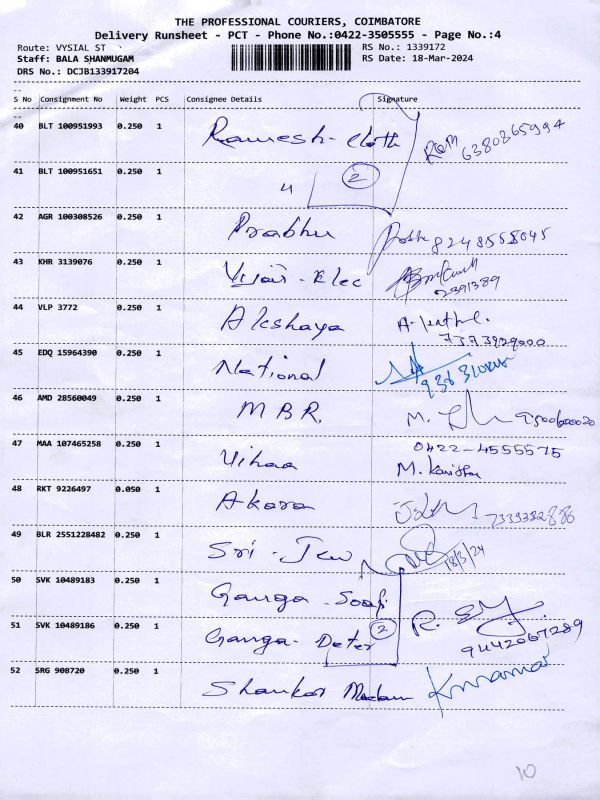 THE PROFESSIONAL COURIERS, COIMBATORE
Delivery Runsheet - PCT - Phone No.:0422-3505555 - Page No.:4
Route: VYSIAL ST
RS No.: 1339172
Staff: BALA SHANMUGAM
RS Date: 18-Mar-2024
DRS No.: DCJB133917204
S No Consignment No Weight PCS Consignee Details Signature
40 BLT 100951993 0.250 1 Ramesh - Cloth 6380265994
41 BLT 100951651 0.250 1 " 2
42 AGR 100308526 0.250 1 Prabhu 8248558045
43 KHR 3139076 0.250 1 Vijai - Elec
2391389
44 VLP 3772 0.250 1 Akshaya
7373929000
45 EDQ 15964390 0.250 1 National
46 AMD 28560049 0.250 1 MBR M.
47 MAA 107465258 0.250 1 Vihaa 0422-4555575
M. Kavitha
48 RKT 9226497 0.050 1 Akara
49 BLR 2551228482 0.250 1 Sri - Jew 18/3/24
50 SVK 10489183 0.250 1 Ganga - Soap
51 SVK 10489186 0.250 1 Ganga - Deter 2 R.
9442067289
52 SRG 908720 0.250 1 Shankar Madam
10